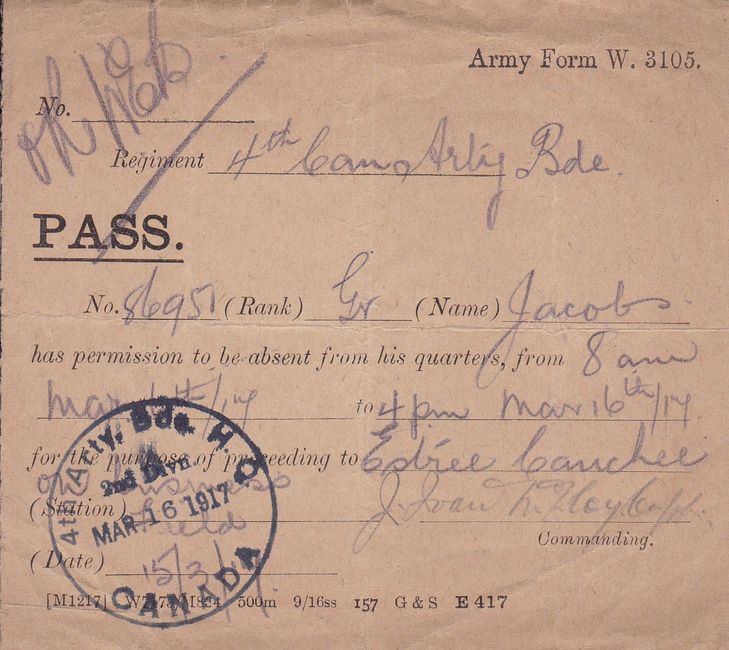 Army Form W. 3105.
No.
Regiment 4th Can. Artly Bde.
PASS.
No. 86951 (Rank) Gr (Name) Jacobs.
has permission to be absent from his quarters, from 8 am
Mar 16th/17 to 4 pm Mar 16th/17.
for the purpose of proceeding to Estrée Cauchee
on business
(Station) Field J. Ivan
Commanding.
(Date) 15/3/17.
4th Arty. Bde. H.Q.
2nd Divn
MAR 16 1917
CANADA
[M1217] 500m 9/16ss 157 G & S E 417